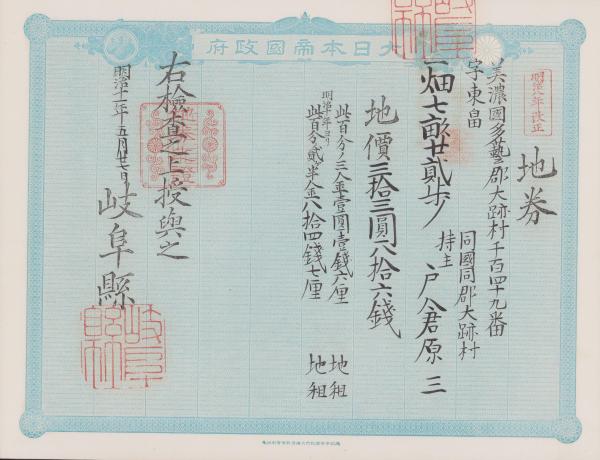 大日本帝國政府
明治九年改正
地券
美濃國多藝郡大跡村千百四十九番
字東畠
一畑七畝廿貳歩
同國同郡大跡村
持主 戸倉原三
地價三拾三圓八拾六錢
此百分ノ三金壹圓壹錢六厘 地租
明治十年ヨリ
此百分ノ貳ヶ半金八拾四錢七厘 地租
右檢査之上授與之
明治十一年五月廿七日
岐阜縣